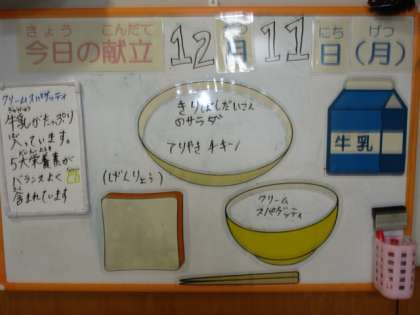 きょう こんだて にち げつ
今日の献立 12月 11日(月)
クリームスパゲッティ
牛乳がたっぷり
入っています。
5大栄養素が
バランスよく
含まれています
きりぼしだいこん
のサラダ
てりやきチキン
牛乳
(げんりょう)
クリーム
スパゲッティ